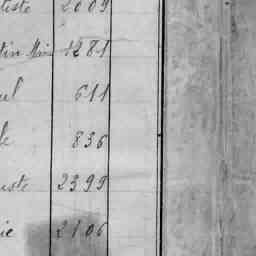 tiste 2009
tin Mme 1281
ul 611
le 836
uste 2399
ie 2106